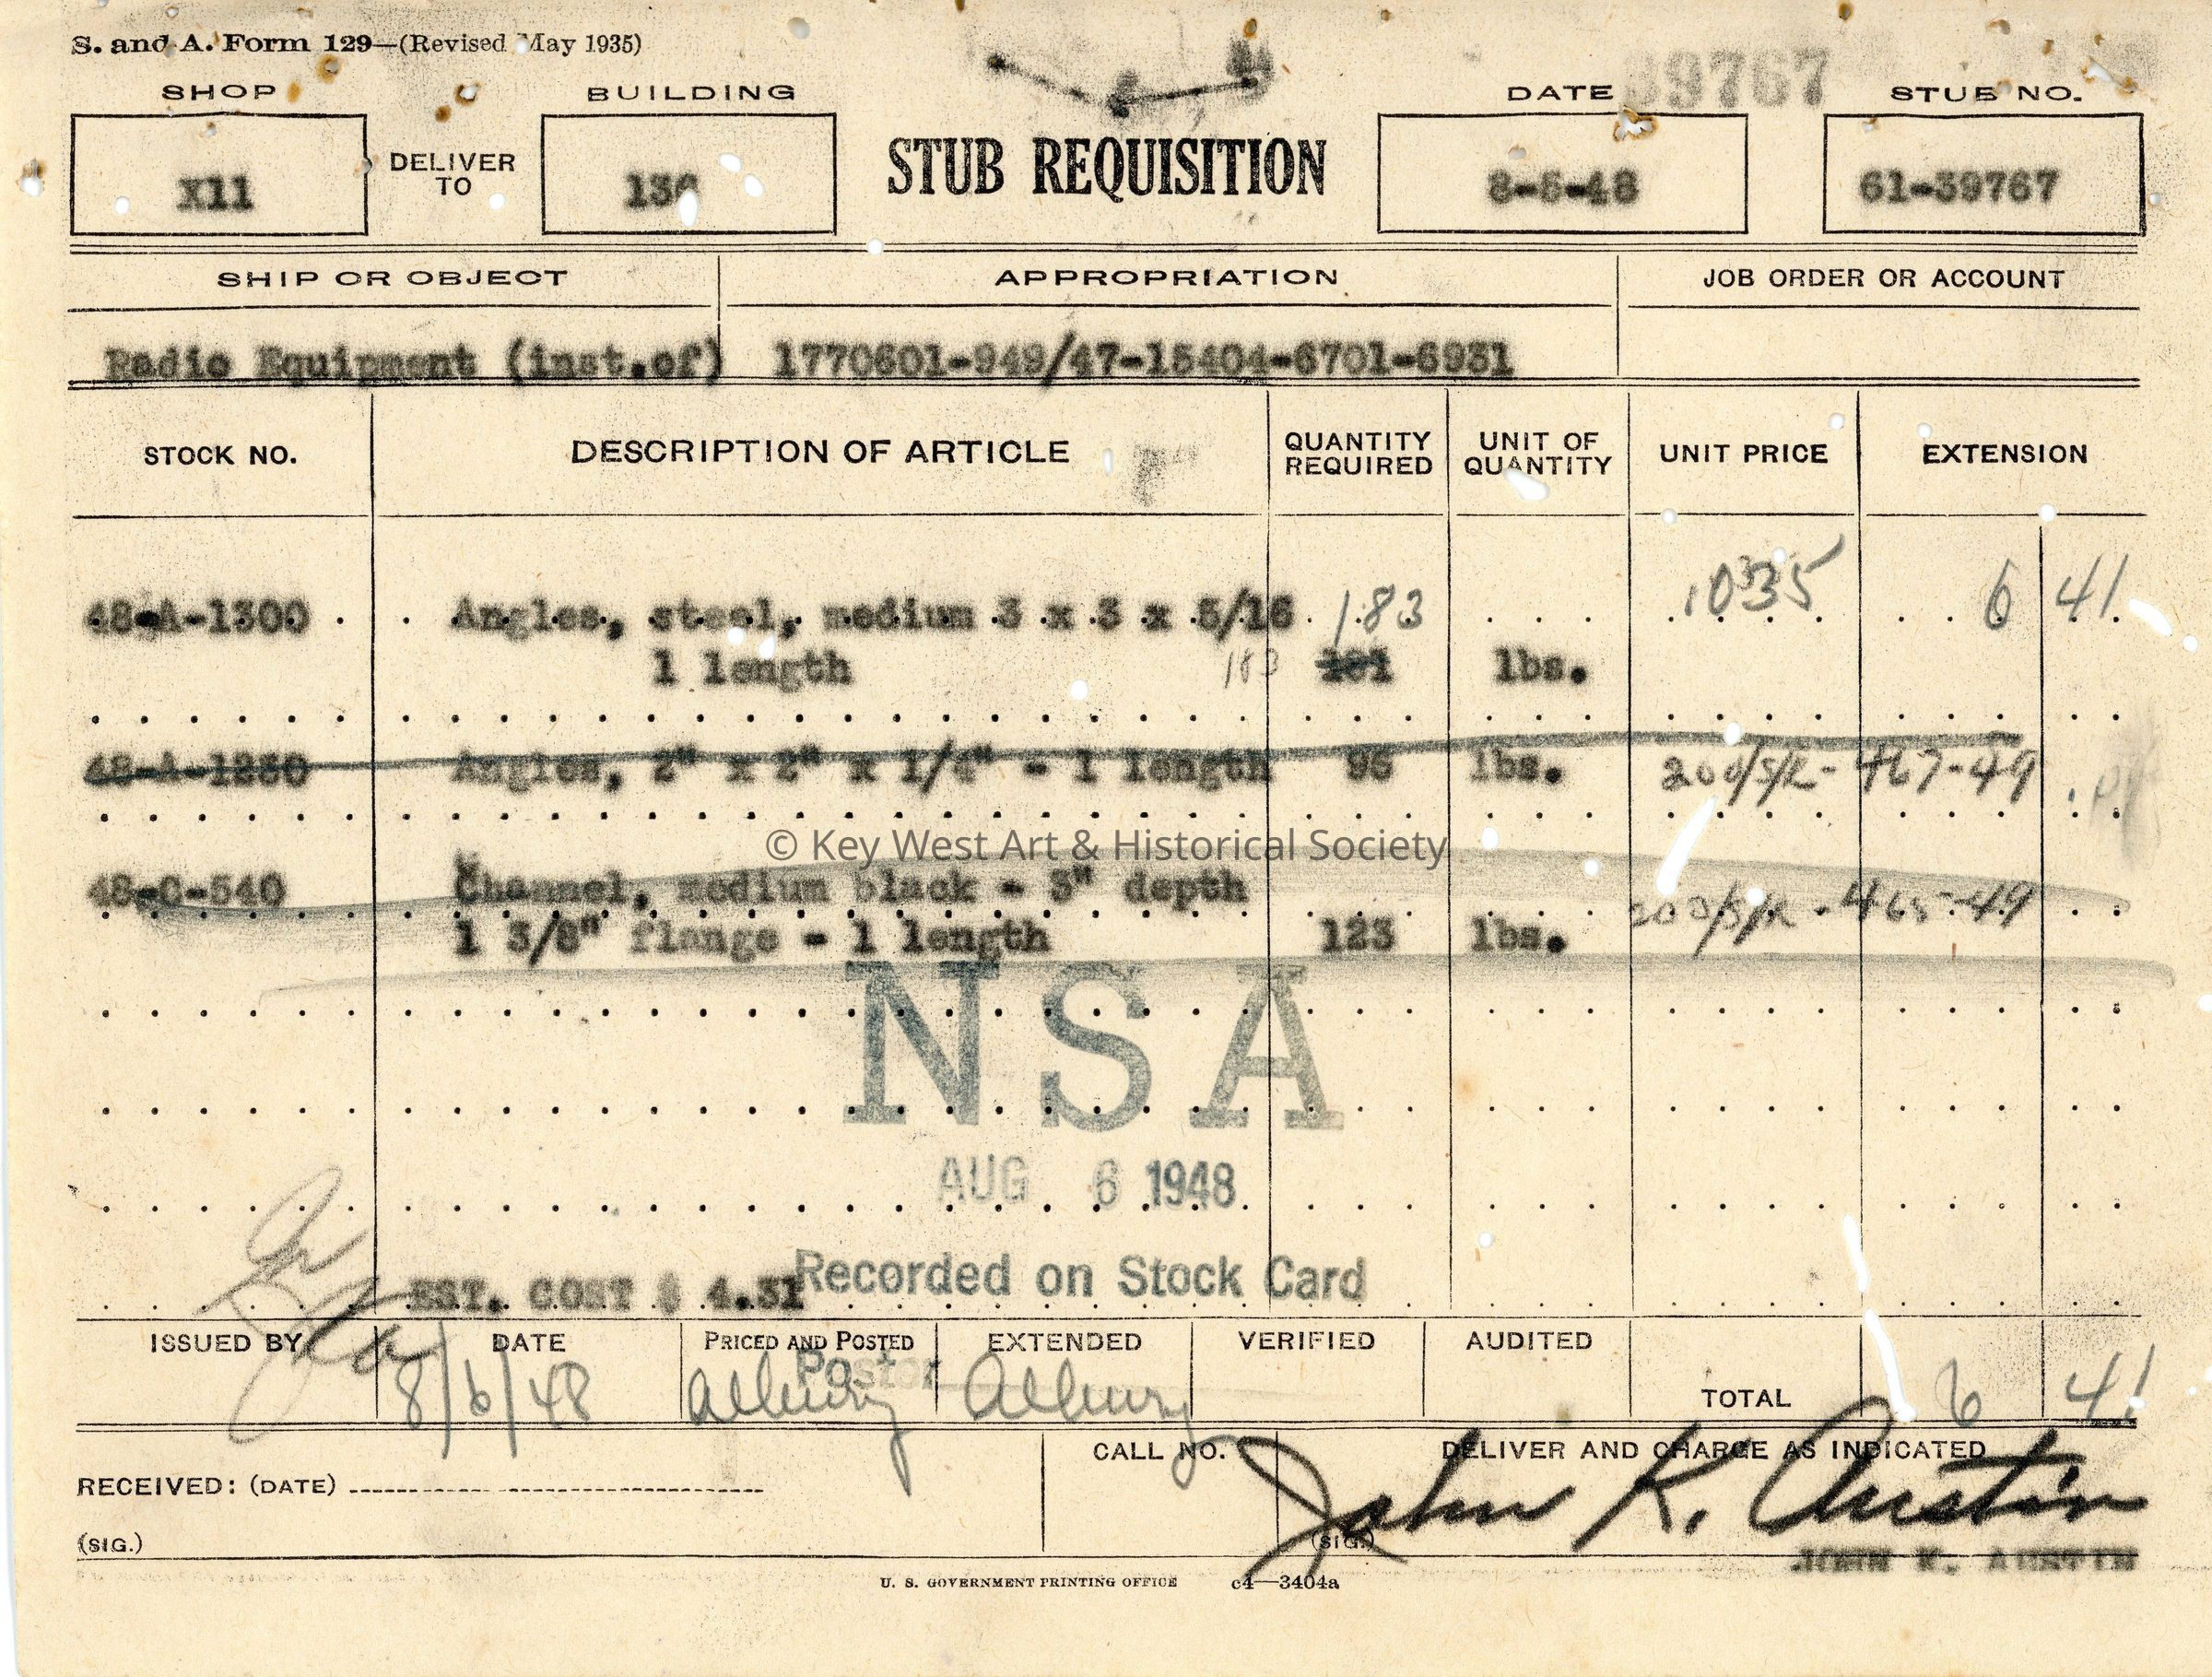 S. and A. Form 129—(Revised May 1935)
39767
SHOP BUILDING DATE STUB NO.
X11 DELIVER TO 130 STUB REQUISITION 8-5-48 61-39767
SHIP OR OBJECT APPROPRIATION JOB ORDER OR ACCOUNT
Radio Equipment (inst.of) 1770601-949/47-15404-6701-6931
STOCK NO. DESCRIPTION OF ARTICLE QUANTITY REQUIRED UNIT OF QUANTITY UNIT PRICE EXTENSION
48-A-1300 Angles, steel, medium 3 x 3 x 5/16 183 .035 6 41
1 length 183 181 lbs.
48-A-1280 Angles, 2" x 2" x 1/4" - 1 length 96 lbs. 200/S/R-467-49
48-C-540 Channel, medium black - 3" depth
1 3/8" flange - 1 length 123 lbs. 200/S/R-465-49
© Key West Art & Historical Society
NSA
AUG 6 1948
EST. COST $ 4.31 Recorded on Stock Card
ISSUED BY DATE PRICED AND POSTED EXTENDED VERIFIED AUDITED
8/6/48 Albury Albury TOTAL 6 41
CALL NO. DELIVER AND CHARGE AS INDICATED
RECEIVED: (DATE)
John K. Austin
(SIG.) (SIG.)
JOHN K. AUSTIN
U. S. GOVERNMENT PRINTING OFFICE c4—3404a